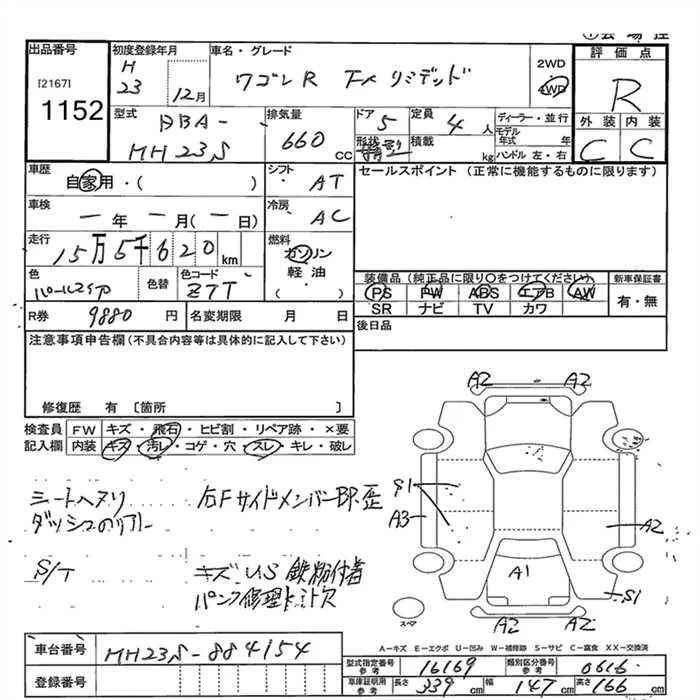 出品番号
[2167]
1152
初度登録年月
H
23
12月
車名・グレード
ワゴンR FX リミテッド
2WD
4WD
評価点
R
外装 内装
C C
型式
DBA-
MH23S
排気量
660
cc
ドア
5
形状
定員
4人
積載
kg
ディーラー・並行
モデル年式 年
ハンドル 左・右
車歴
自家用・( )
シフト
・AT
セールスポイント (正常に機能するものに限ります)
車検
一年一月(一日)
冷房
・AC
走行
15万5千620
km
燃料
ガソリン
軽油
( )
色
パールホワイト
色替
色コード
Z7T
装備品 (純正品に限り○をつけてください)
PS PW ABS エアB AW
SR ナビ TV カワ
新車保証書
有・無
R券 9880 円
名変期限 月 日
後日品
注意事項申告欄 (不具合内容等は具体的に記入して下さい)
修復歴 有 〔箇所 〕
検査員 FW キズ・飛石・ヒビ割・リペア跡・×要
記入欄 内装 キズ・汚レ・コゲ・穴・スレ・キレ・破レ
シートヘタリ
右Fサイドメンバー BP. 歪
S/T
キズ U.S 鉄粉付着
パンク修理キット欠
A2 A2
S1
A3
A2
A1
S1
A2 A2
スペア
A-キズ E-エクボ U-凹み W-補修跡 S-サビ C-腐食 XX-交換済
車台番号 MH23S-884154
登録番号
型式指定番号 参考 16169
類別区分番号 参考 0616
車庫証明用 参考 長さ 339 cm 幅 147 cm 高さ 166 cm